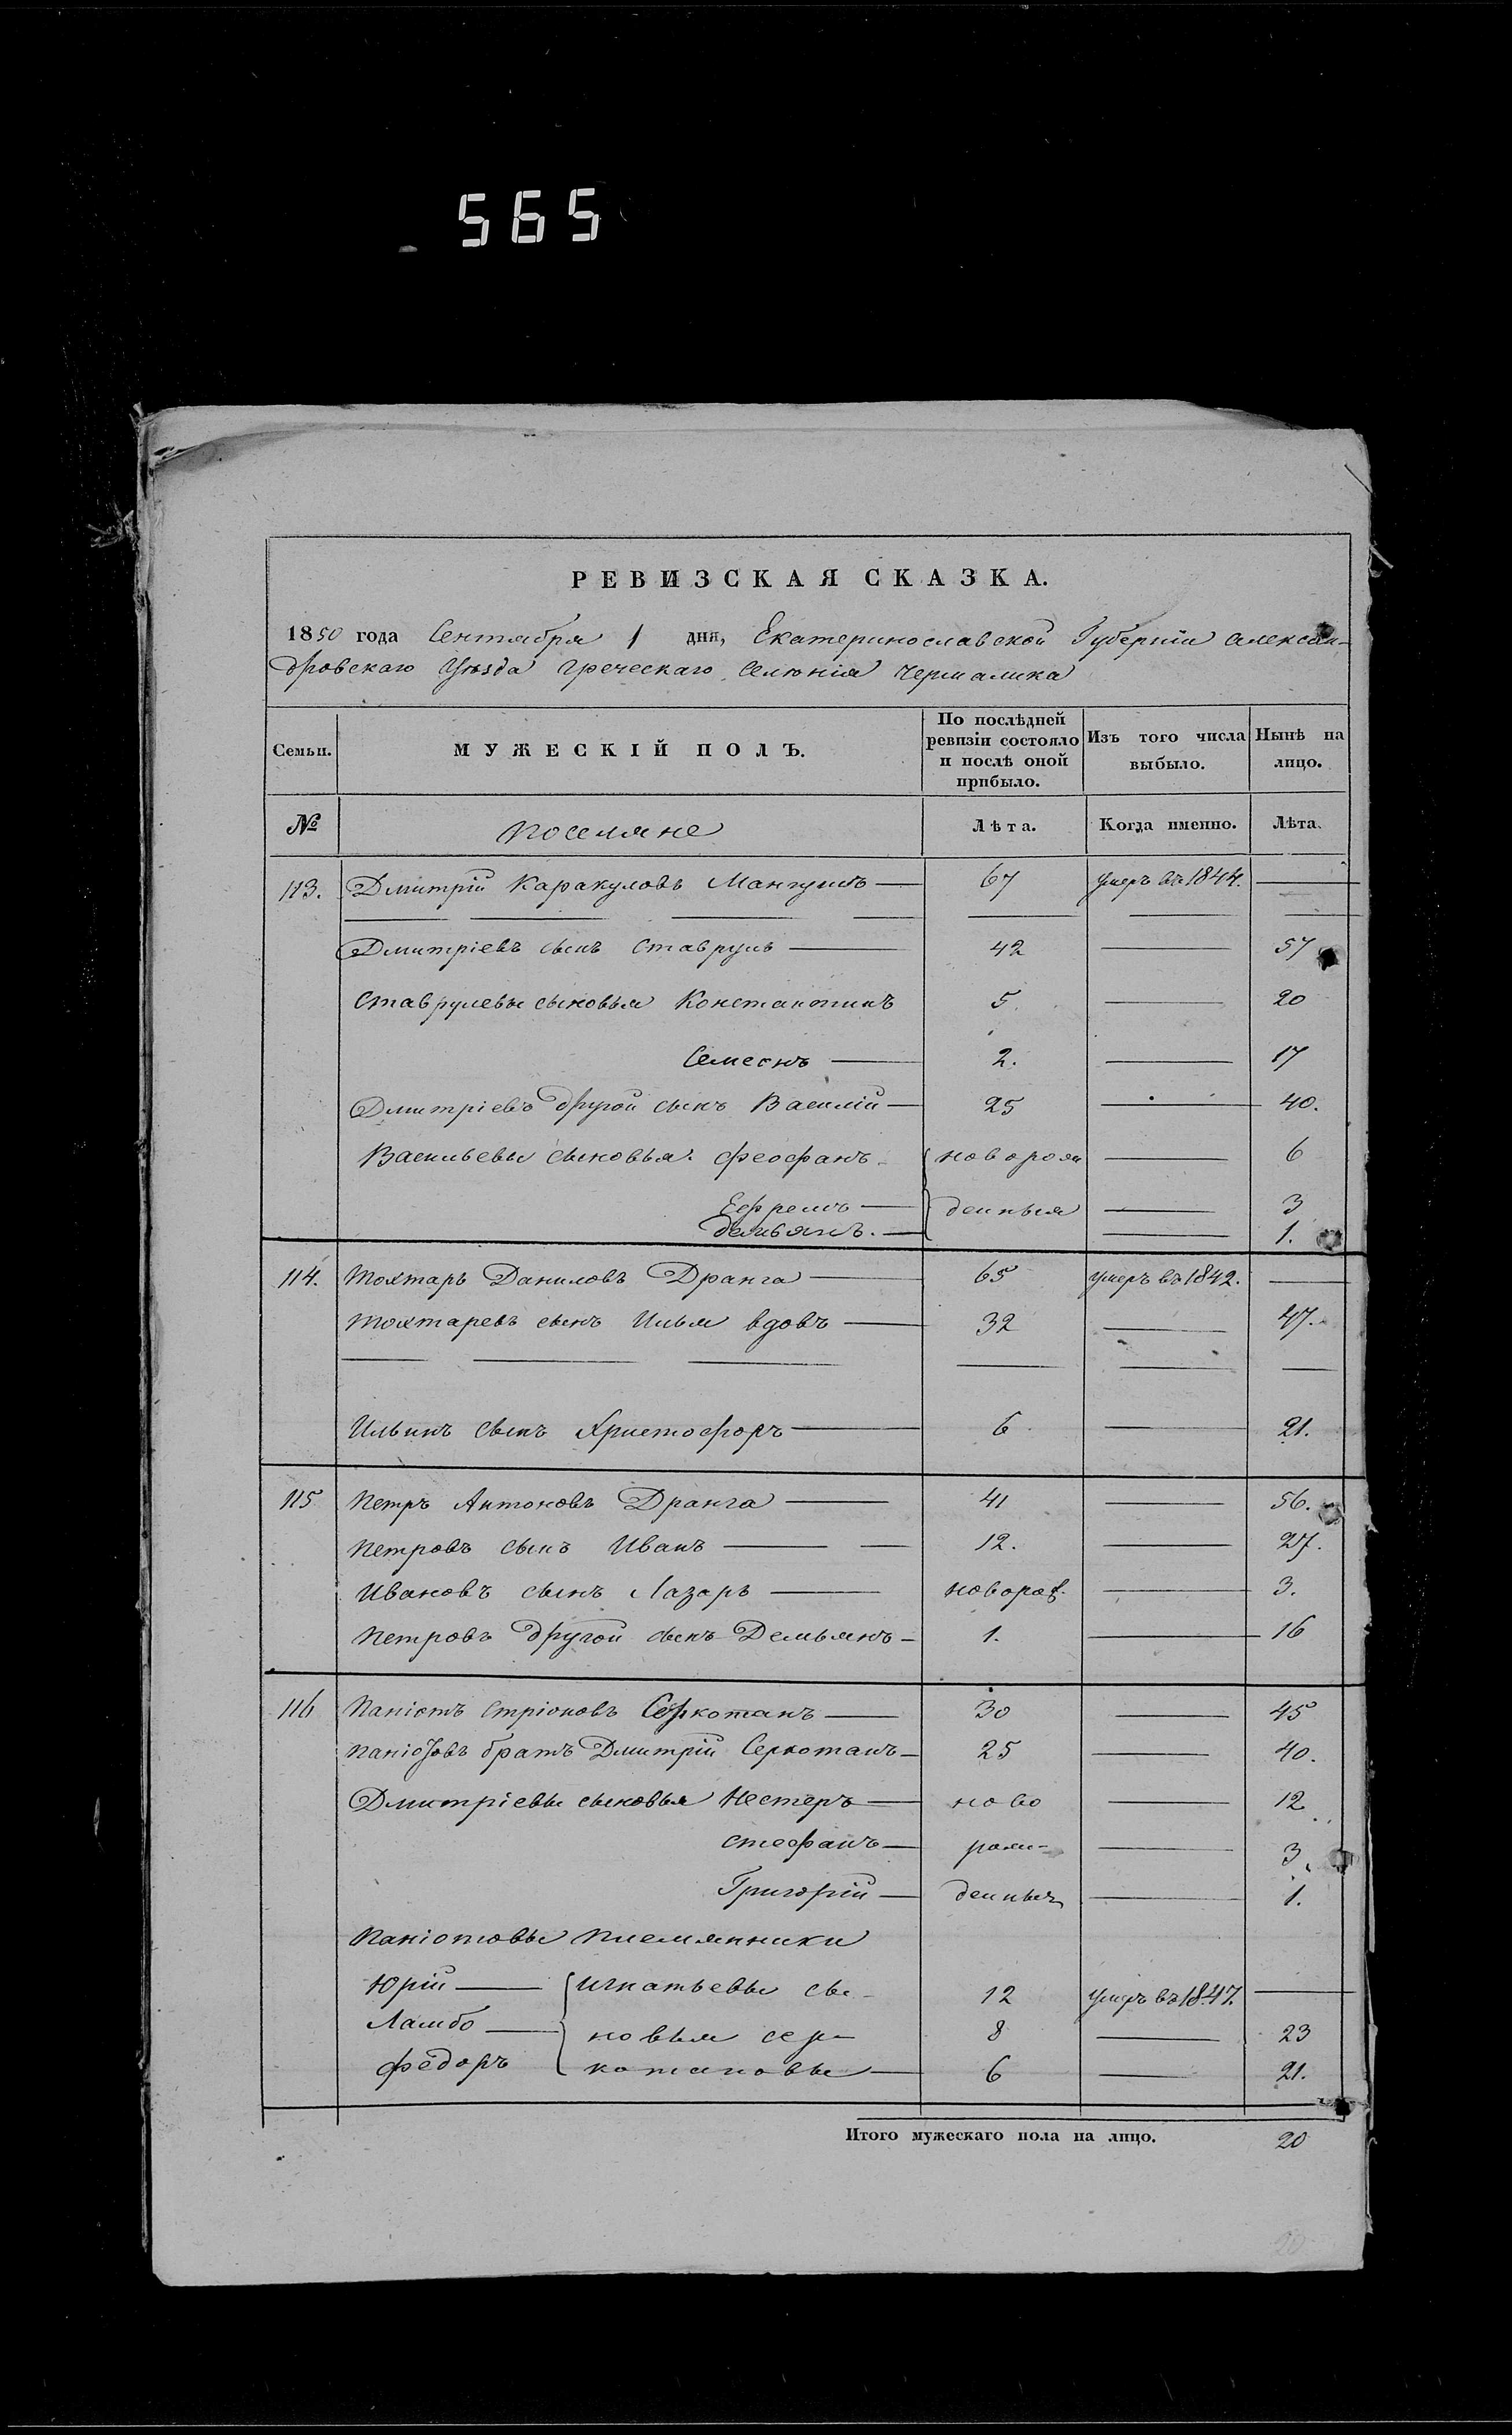 565
РЕВИЗСКАЯ СКАЗКА.
1850 года Сентября 1 дня, Екатеринославской Губерніи Алексан-
дровскаго Уѣзда Греческаго Селенія Чермалика
Семьи. МУЖЕСКІЙ ПОЛЪ. По послѣдней ревизіи состояло и послѣ оной прибыло. Изъ того числа выбыло. Нынѣ на лицо.
№ Поселяне Лѣта. Когда именно. Лѣта.
113. Дмитрій Каракуловъ Мангушъ 67 умеръ въ 1844.
Дмитріевъ сынъ Ставрулъ 42 57
Ставрулевы сыновья Константинъ 5. 20
Семенъ 2. 17
Дмитріевъ другой сынъ Василій 25 40.
Васильевы сыновья. Феофанъ новорож 6
Ефремъ денныя 3
Демьянъ. 1.
114. Тохтаръ Даниловъ Дранга 65 умеръ въ 1842.
Тохтаревъ сынъ Илья вдовъ 32 47.
Ильинъ сынъ Христофоръ 6 21.
115 Петръ Антоновъ Дранга 41 56.
Петровъ сынъ Иванъ 12. 27.
Ивановъ сынъ Лазарь новорож. 3.
Петровъ другой сынъ Демьянъ 1. 16
116 Паніотъ Стріоновъ Серкотанъ 30 45
Паніотовъ братъ Дмитрій Серкотанъ 25 40.
Дмитріевы сыновья Нестеръ ново 12
Стефанъ рож- 3.
Григорій денныя 1.
Паніотовы племянники
Юрій Игнатьевы сы- 12 умеръ въ 1847.
Ламбо новья сер- 8 23
Федоръ котановы 6 21.
Итого мужескаго пола на лицо. 20
20